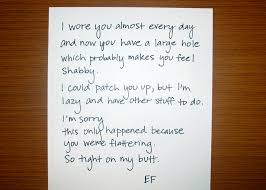 I wore you almost every day
and now you have a large hole
which probably makes you feel
Shabby.
I could patch you up, but I'm
lazy and have other stuff to do.
I'm sorry,
this only happened because
you were flattering.
So tight on my butt.
EF